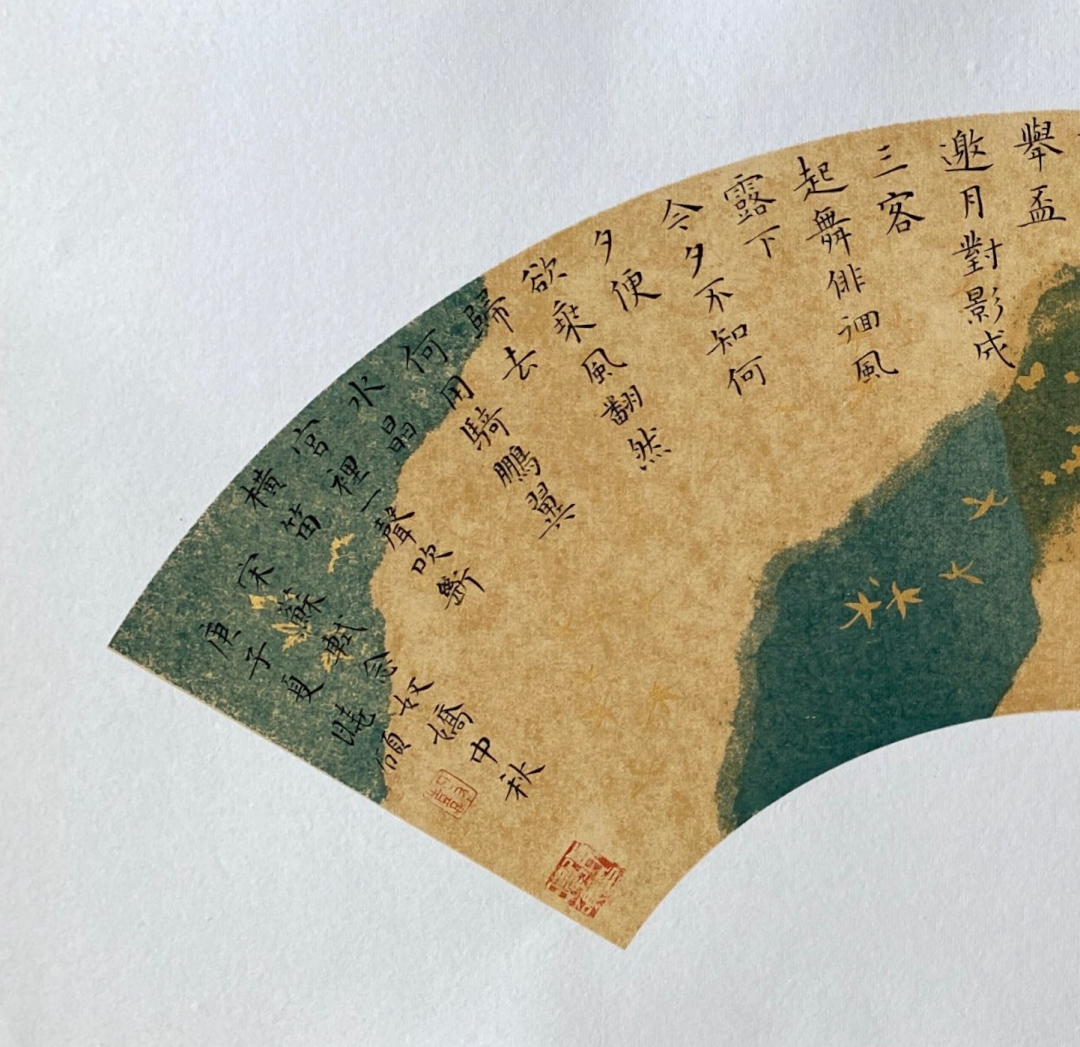 舉盃
邀月對影成
三客
起舞俳徊風
露下
今夕不知何
夕便
欲乘風翻然
歸去
何用騎鵬翼
水晶
宮裡一聲吹斷
橫笛
宋蘇軾念奴嬌中秋
庚子夏曉